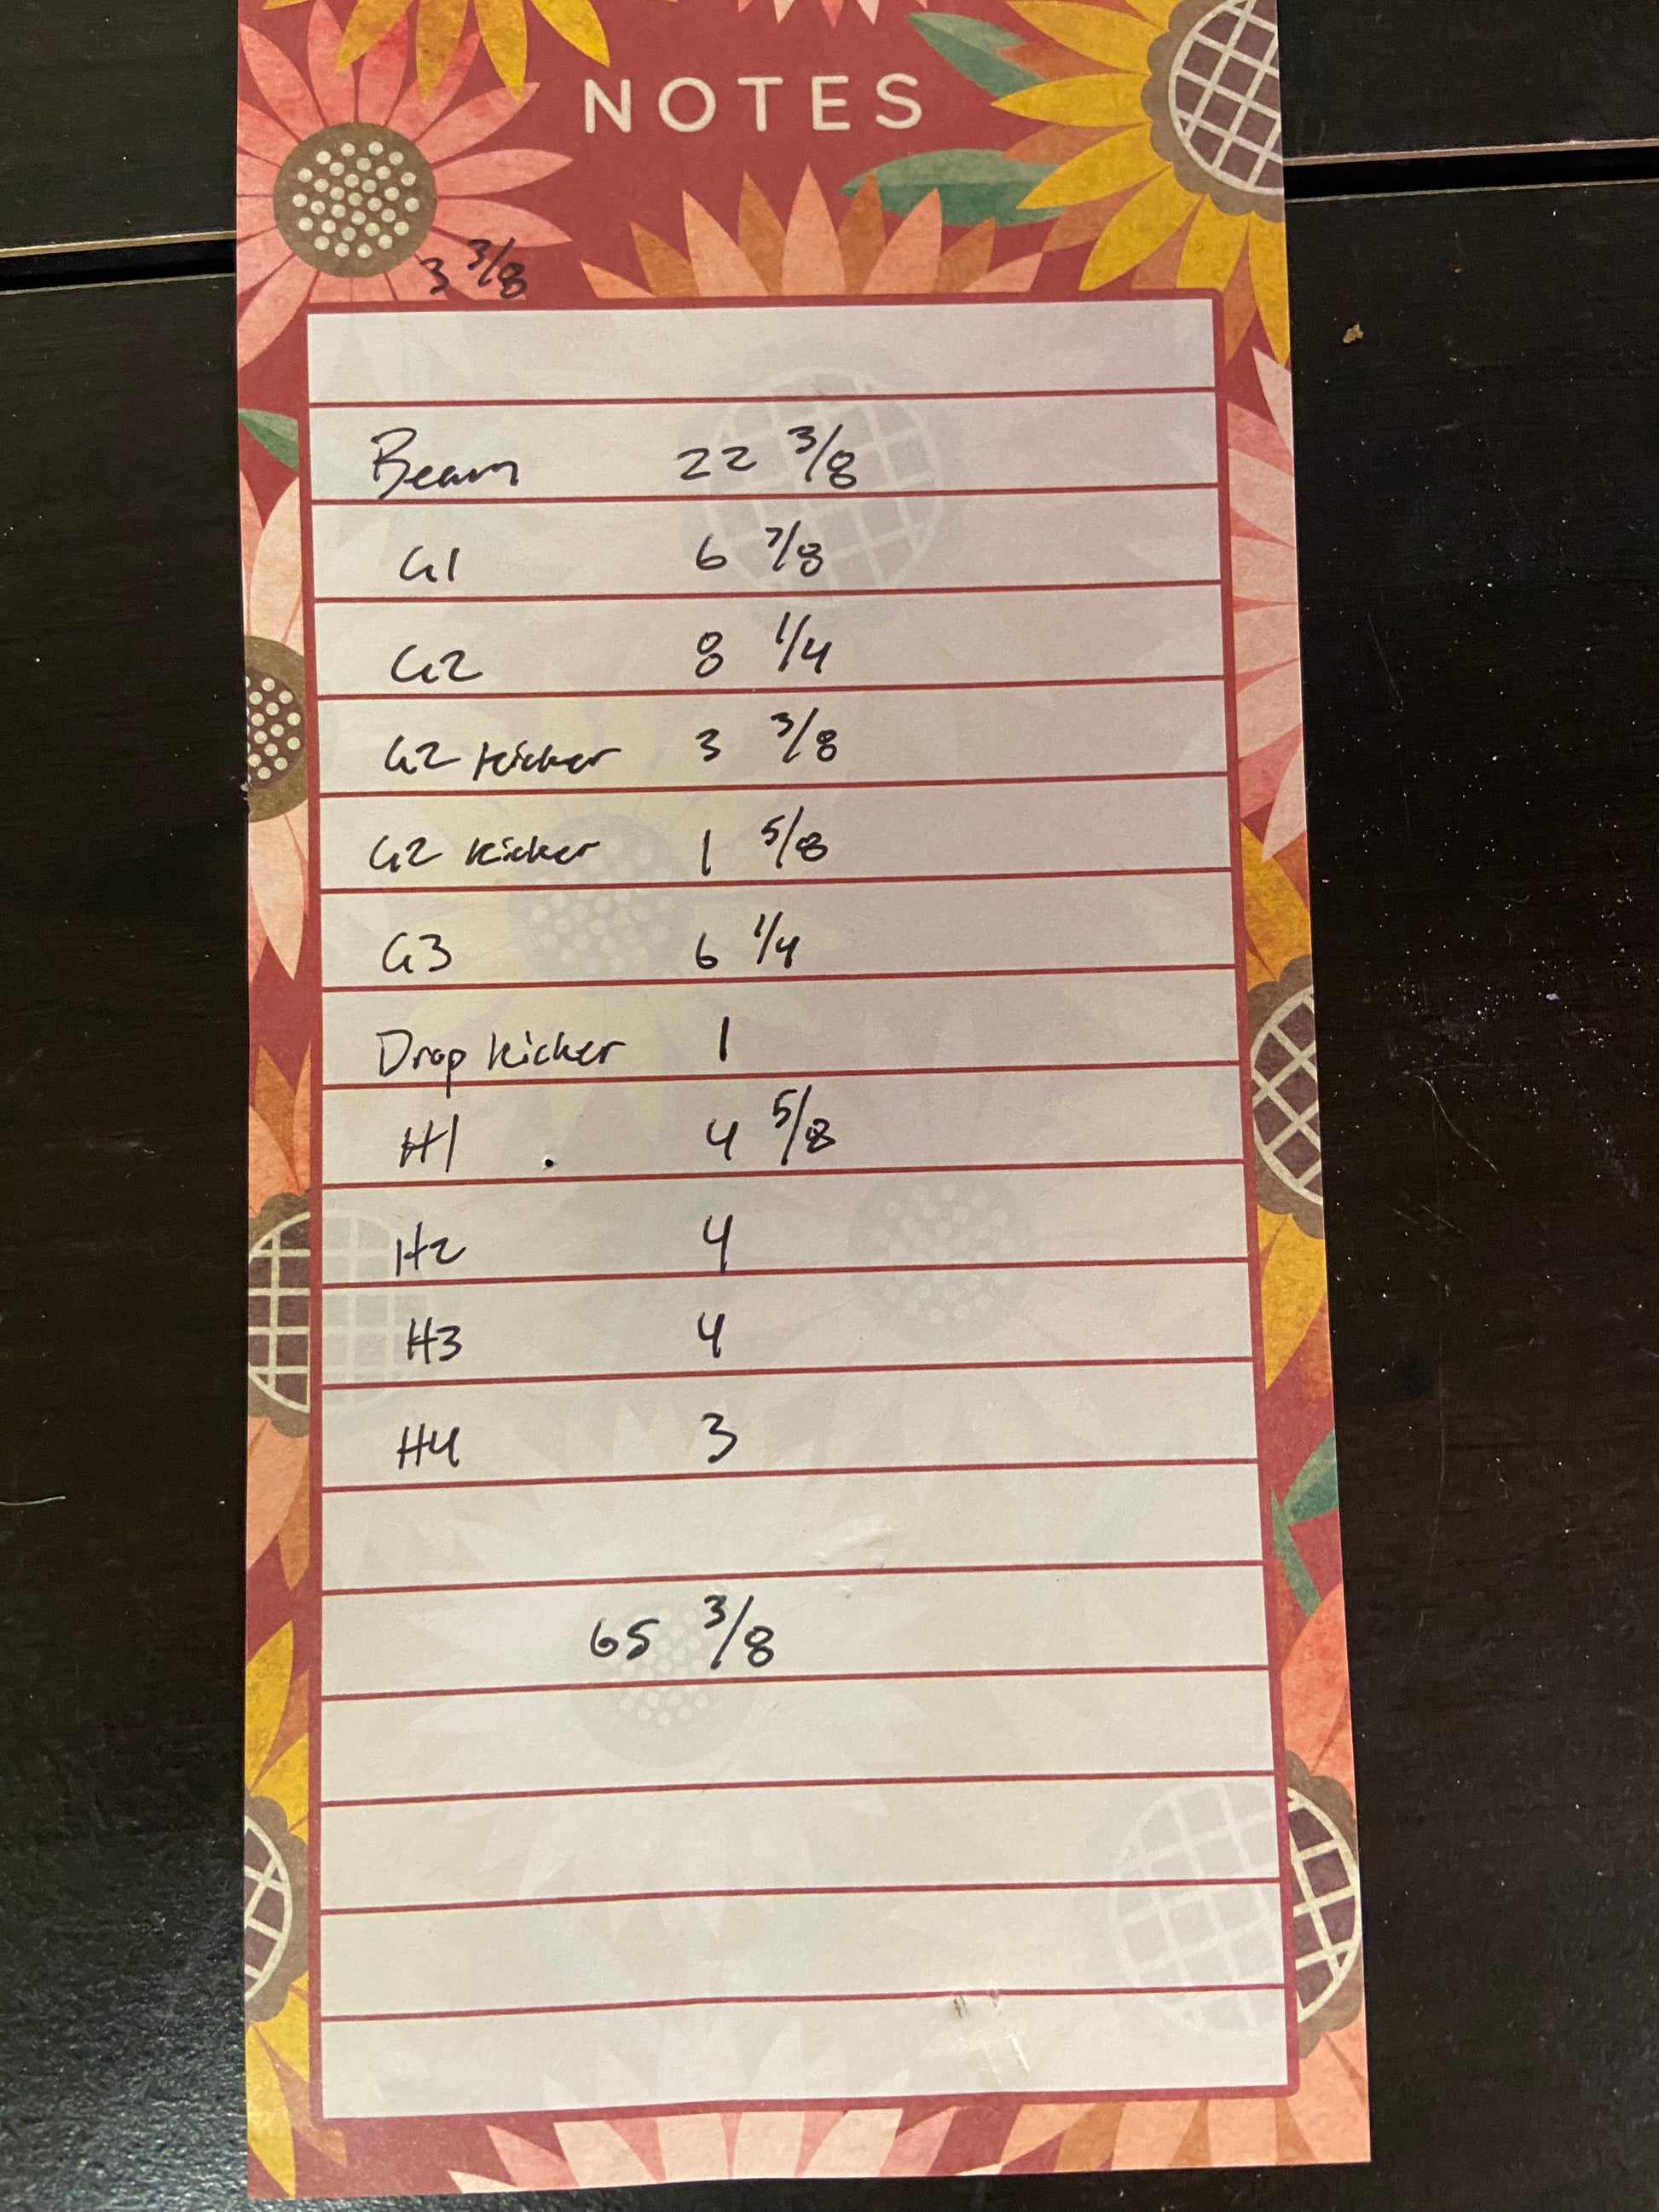 NOTES
3 3/8
Beam 22 3/8
G1 6 7/8
G2 8 1/4
G2 kicker 3 3/8
G2 kicker 1 5/8
G3 6 1/4
Drop kicker 1
H1 . 4 5/8
H2 4
H3 4
H4 3
65 3/8